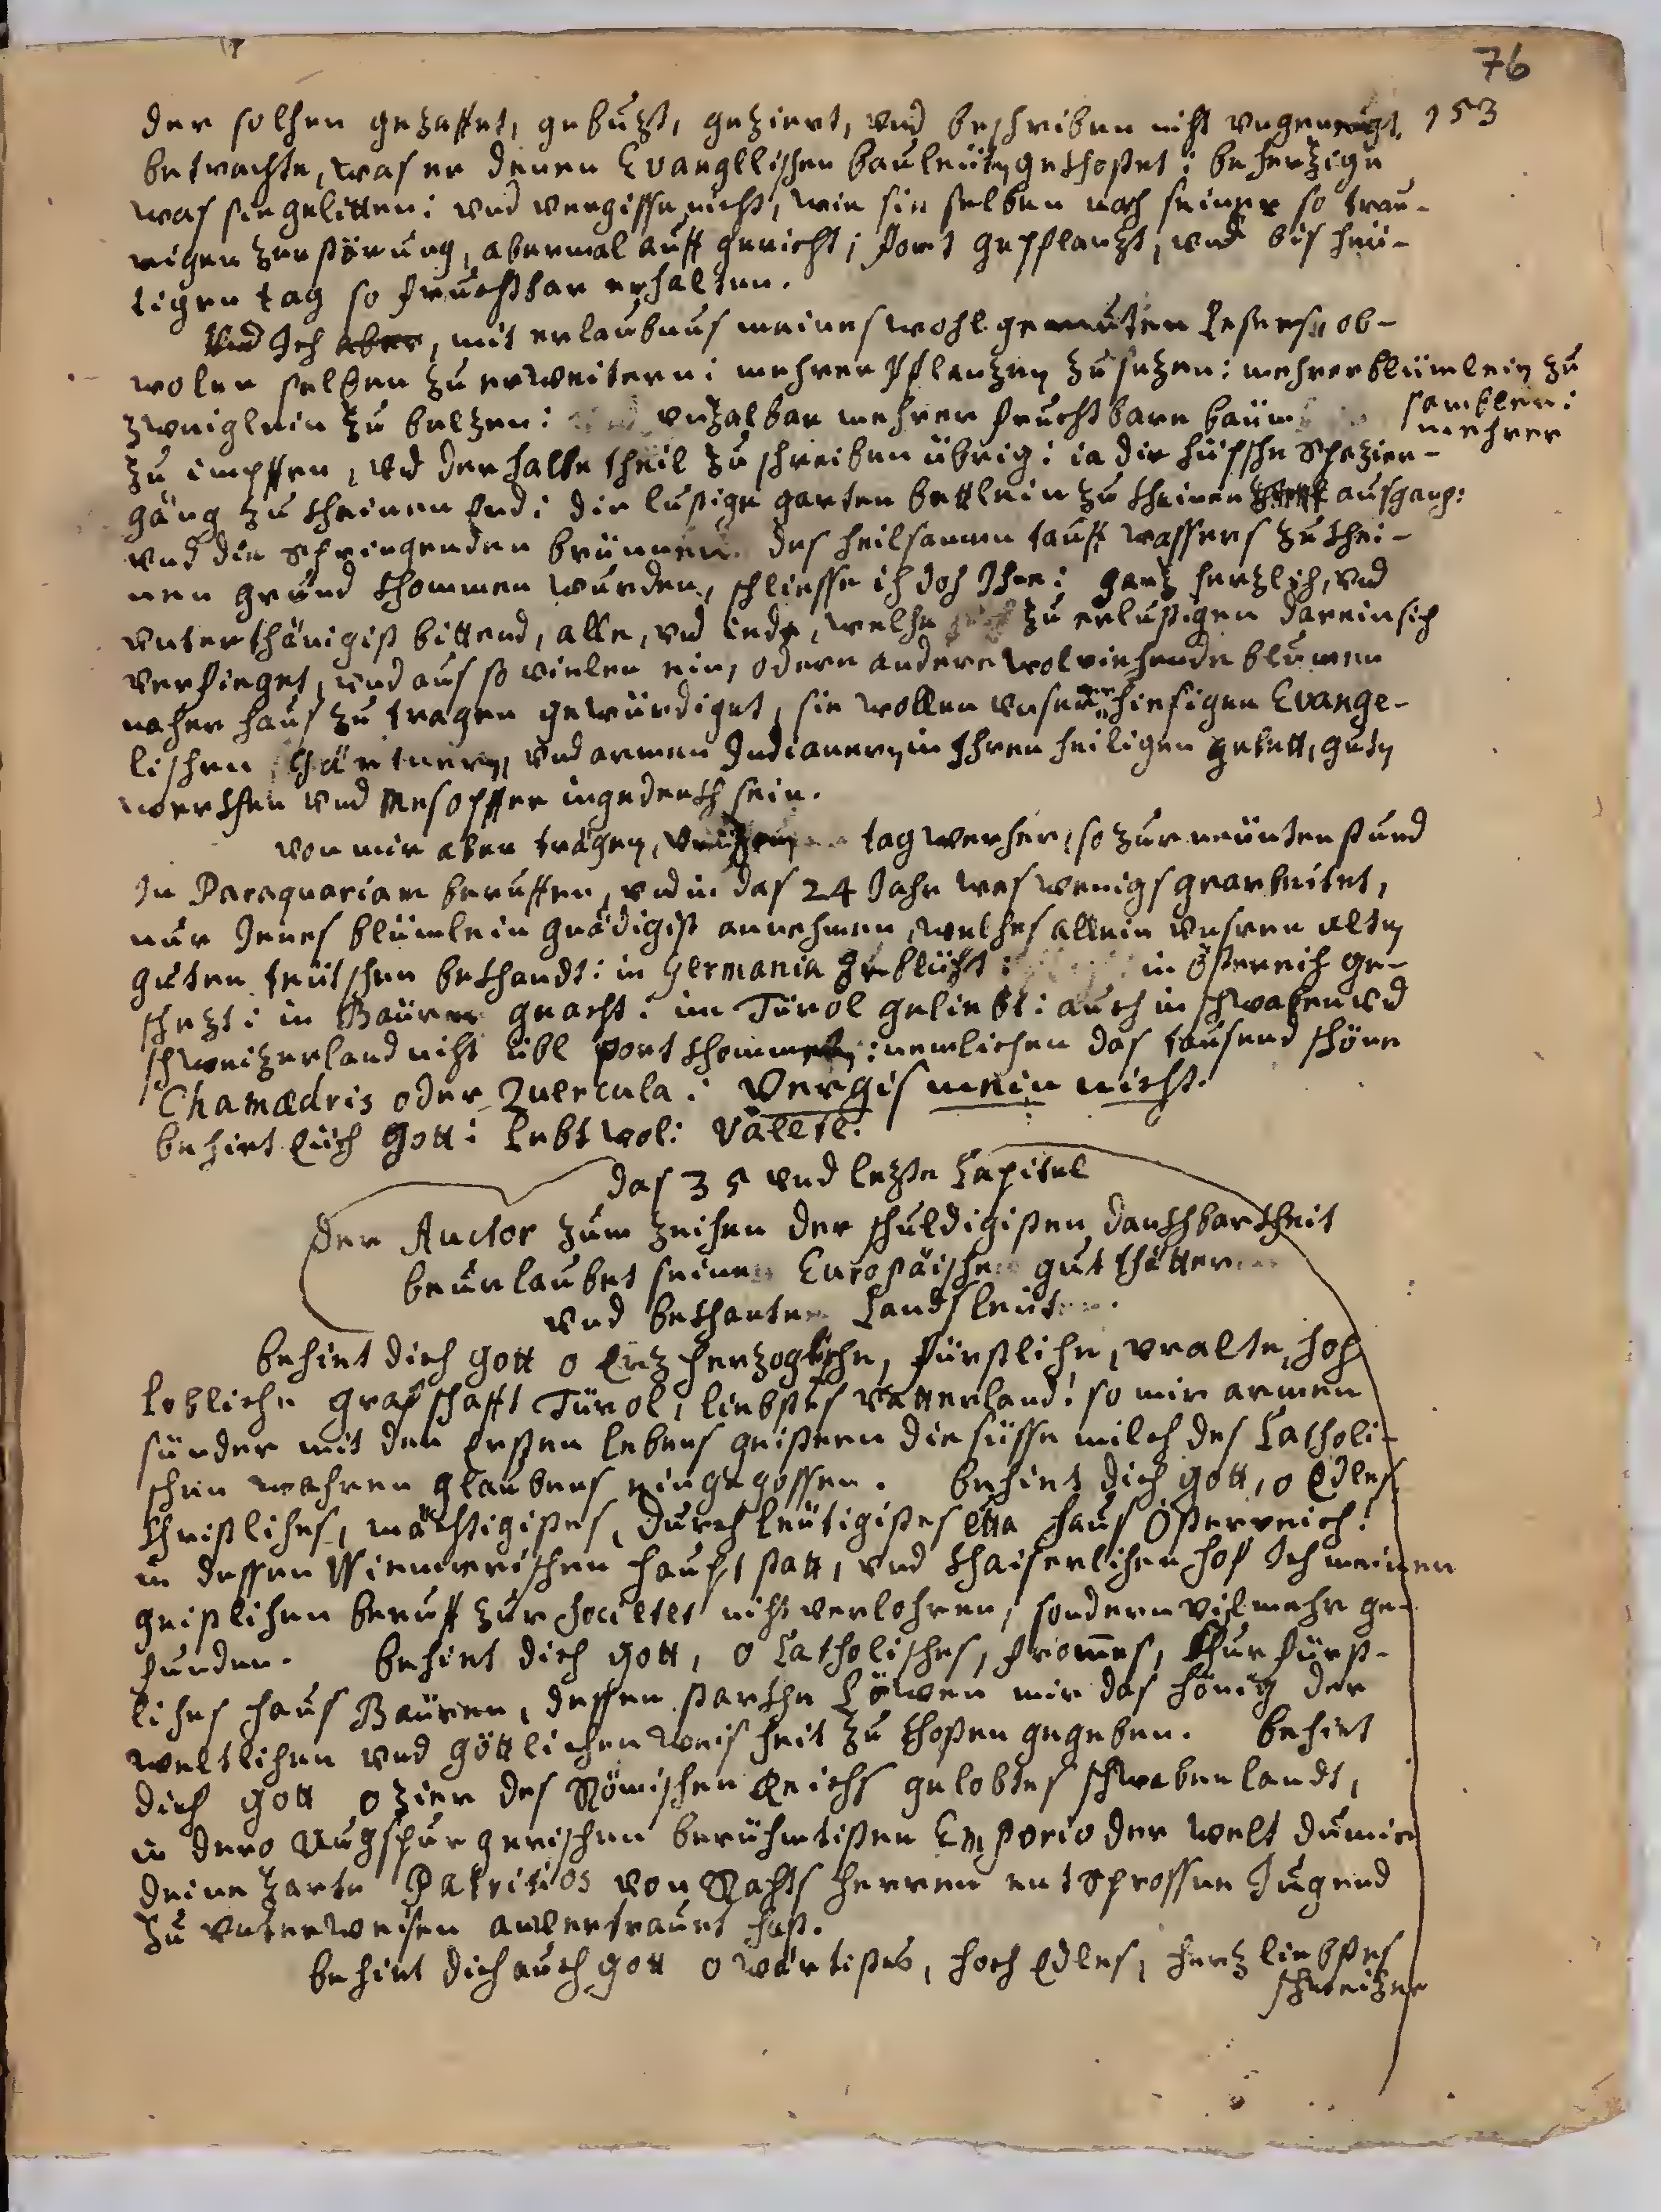 76
153
der solchen gezaffet, gebuzt, geziert, und beschriben nicht ungeneigt,
betrachte, was er denen Evangllischen bauleüten gekhostet: beherzige
was sie gelitten: und vergisse nicht, wie sie selben nach seiner so trau-
rigen zerstörung, abermal auff gericht; fort gepflanzt, und bis heü-
tigen tag so fruchtbar erhalten.
Und Ich aber, mit erlaubnus meines wohl gemuten Lesers, ob-
wolen selben zu erweitern: mehrer pflanzen zu sezen: mehrer blümlein zu
samblen: mehrer
zweiglein zu belzen: unzalbar mehrer fruchtbare baüm
zu impffen, und der halbe theil zu schreiben übrig: ia die hüpsche Spazier-
gäng zu kheinem end: die lustige garten bettlein zu kheinen ausgang:
und die Springenden brünnen des heilsamen tauff wassers zu khei-
nen grund khommen wurden, schliesse ich doch Ihne: ganz herzlich, und
unterthänigist bittend, alle, und iede, welche zu erlustigen darein sich
verfieget, und aus so vielen ein, odere andere wolriehende blumen
naher haus zu tragen gewürdiget, sie wollen unserer hiesigen Evange-
lischen Gärtnern, und armen Indianern in Ihren heiligen gebett, guten
werkhen und Mesopffer ingedenkh sein.
von mir aber trägen, tagwerher, so zur neünten stund
In Paraquariam beruffen, und in das 24 Jahr was wenigs gearbeitet,
nur Jenes blümlein gnädigist annehmen, welches allein unseren alten
guten teütschen bekhandt: in Germania geblüht: in östereich ge-
schezt: in Baüren geacht: im Türol geliebt: auch in schwaben und
schweizerland nicht übl fort khommet: nemlichen das tausend schöne
Chamædris oder Quercula: Vergis mein nicht.
behiet eüch Gott: Lebt wol: Valete.
Das 35 und lezte Capitel
Der Auctor zum zeichen der schuldigisten dankhbarkheit
beurlaubet seinen Europäischen gutthättern
und bekhanten Landsleüten.
behiet dich gott o Erzherzogliche, fürstliche, uralte, hoch
lobliche grafschafft Türol, liebstes Vatterland! so mir armen
sünder mit den ersten lebens geistern die süsse milch des Catholi-
schen wahren glaubens eingegossen. behiet dich gott, o Edles
christliches, mächtigistes, durchleütigistes haus Österreich!
in dessen Wiennerischen haupt statt, und khaiserlichen hof Ich meinen
geistlichen beruff zur societet nicht verlohren, sondern vilmehr ge-
funden. behiet dich gott, o Catholisches, from̄es, Churfürst-
liches haus Baüren, dessen starkhe Löwen mir das hönig der
weltlichen und göttlichen weisheit zu khosten gegeben. behiet
dich gott o zier des Römischen Reichs gelobtes schwabenlandt,
in dero Augspurgerischen berühmtisten Emporio der welt du mir
deine zarte Patritios von Rahts herren entsprossne Jugend
zu unterweisen anvertrauet hast.
behiet dich auch gott o wärtistes, hoch Edles, herzliebstes
schweizer